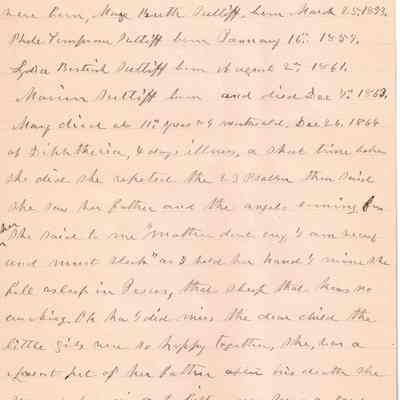 were born, May Ruth Sutliff, born March 25. 1853.
Phebe Temperance Sutliff born January 16th. 1859.
Lydia Bostwick Sutliff born August 2nd. 1861.
Marion Sutliff born and died Dec 4th. 1862.
May died at 11 years & 9 months old. Dec 26. 1864
of Diphtheria, 4 days illness, a short time before
she died she repeated the 23 Psalm then said
she saw her father and the angels coming for
her She said to me "mother dont cry, I am
and must sleep" as I held her hand in mine she
fell asleep in Jesus, that sleep that knows no
waking. Oh how I did miss the dear child the
little girls were so happy together, she was a
great pet of her Father after his death she